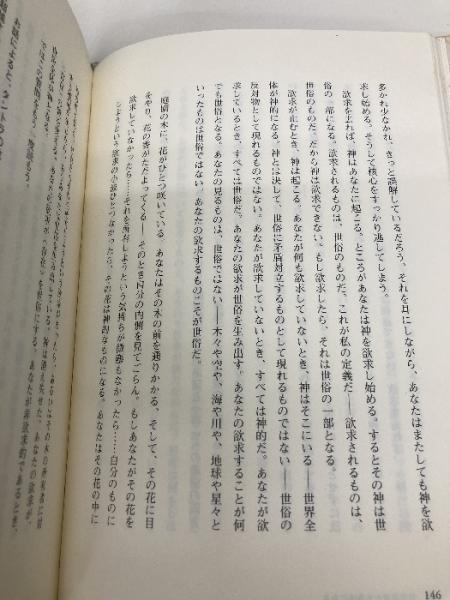 多かれ少なかれ、きっと誤解しているだろう、それを耳にしながら、あなたはまたしても神を欲
求し始める。そうして核心をすっかり逃してしまう。
欲求を去れば、神はあなたに起こる。ところがあなたは神を欲求し始める。するとその神は世
俗の一部になる。欲求されるものは、世俗のものだ。これが私の定義だ——欲求されるものは、
世俗のものだ。だから神は欲求できない。もし欲求したら、それは世俗の一部となる。
欲求が止むとき、神は起こる。あなたが何も欲求していないとき、神はそこにいる——世界全
体が神的になる。神とは決して、世俗に矛盾対立するものとして現れるものではない——世俗の
反対物として現れるものではない。あなたが欲求していないとき、すべては神的だ。あなたが欲
求しているとき、すべては世俗だ。あなたの欲求が世俗を生み出す。あなたの欲求することが何
でも世俗となる。あなたの見るものは、世俗ではない——木々や空や、海や川や、地球や星々と
いったものは世俗ではない。あなたの欲求するものこそが世俗だ。
庭園の木に、花がひとつ咲いている あなたはその木の前を通りかかる、そして、その花に目
をやり、花の香がただよってくる——そのとき自分の内側を見てごらん。もしあなたがその花を
欲求していなかったら……それを所有しようという気持ちが微塵もなかったら……自分のものに
しようという欲求の小波ひとつなかったら、その花は神的なものになる。あなたはその花の中に
146